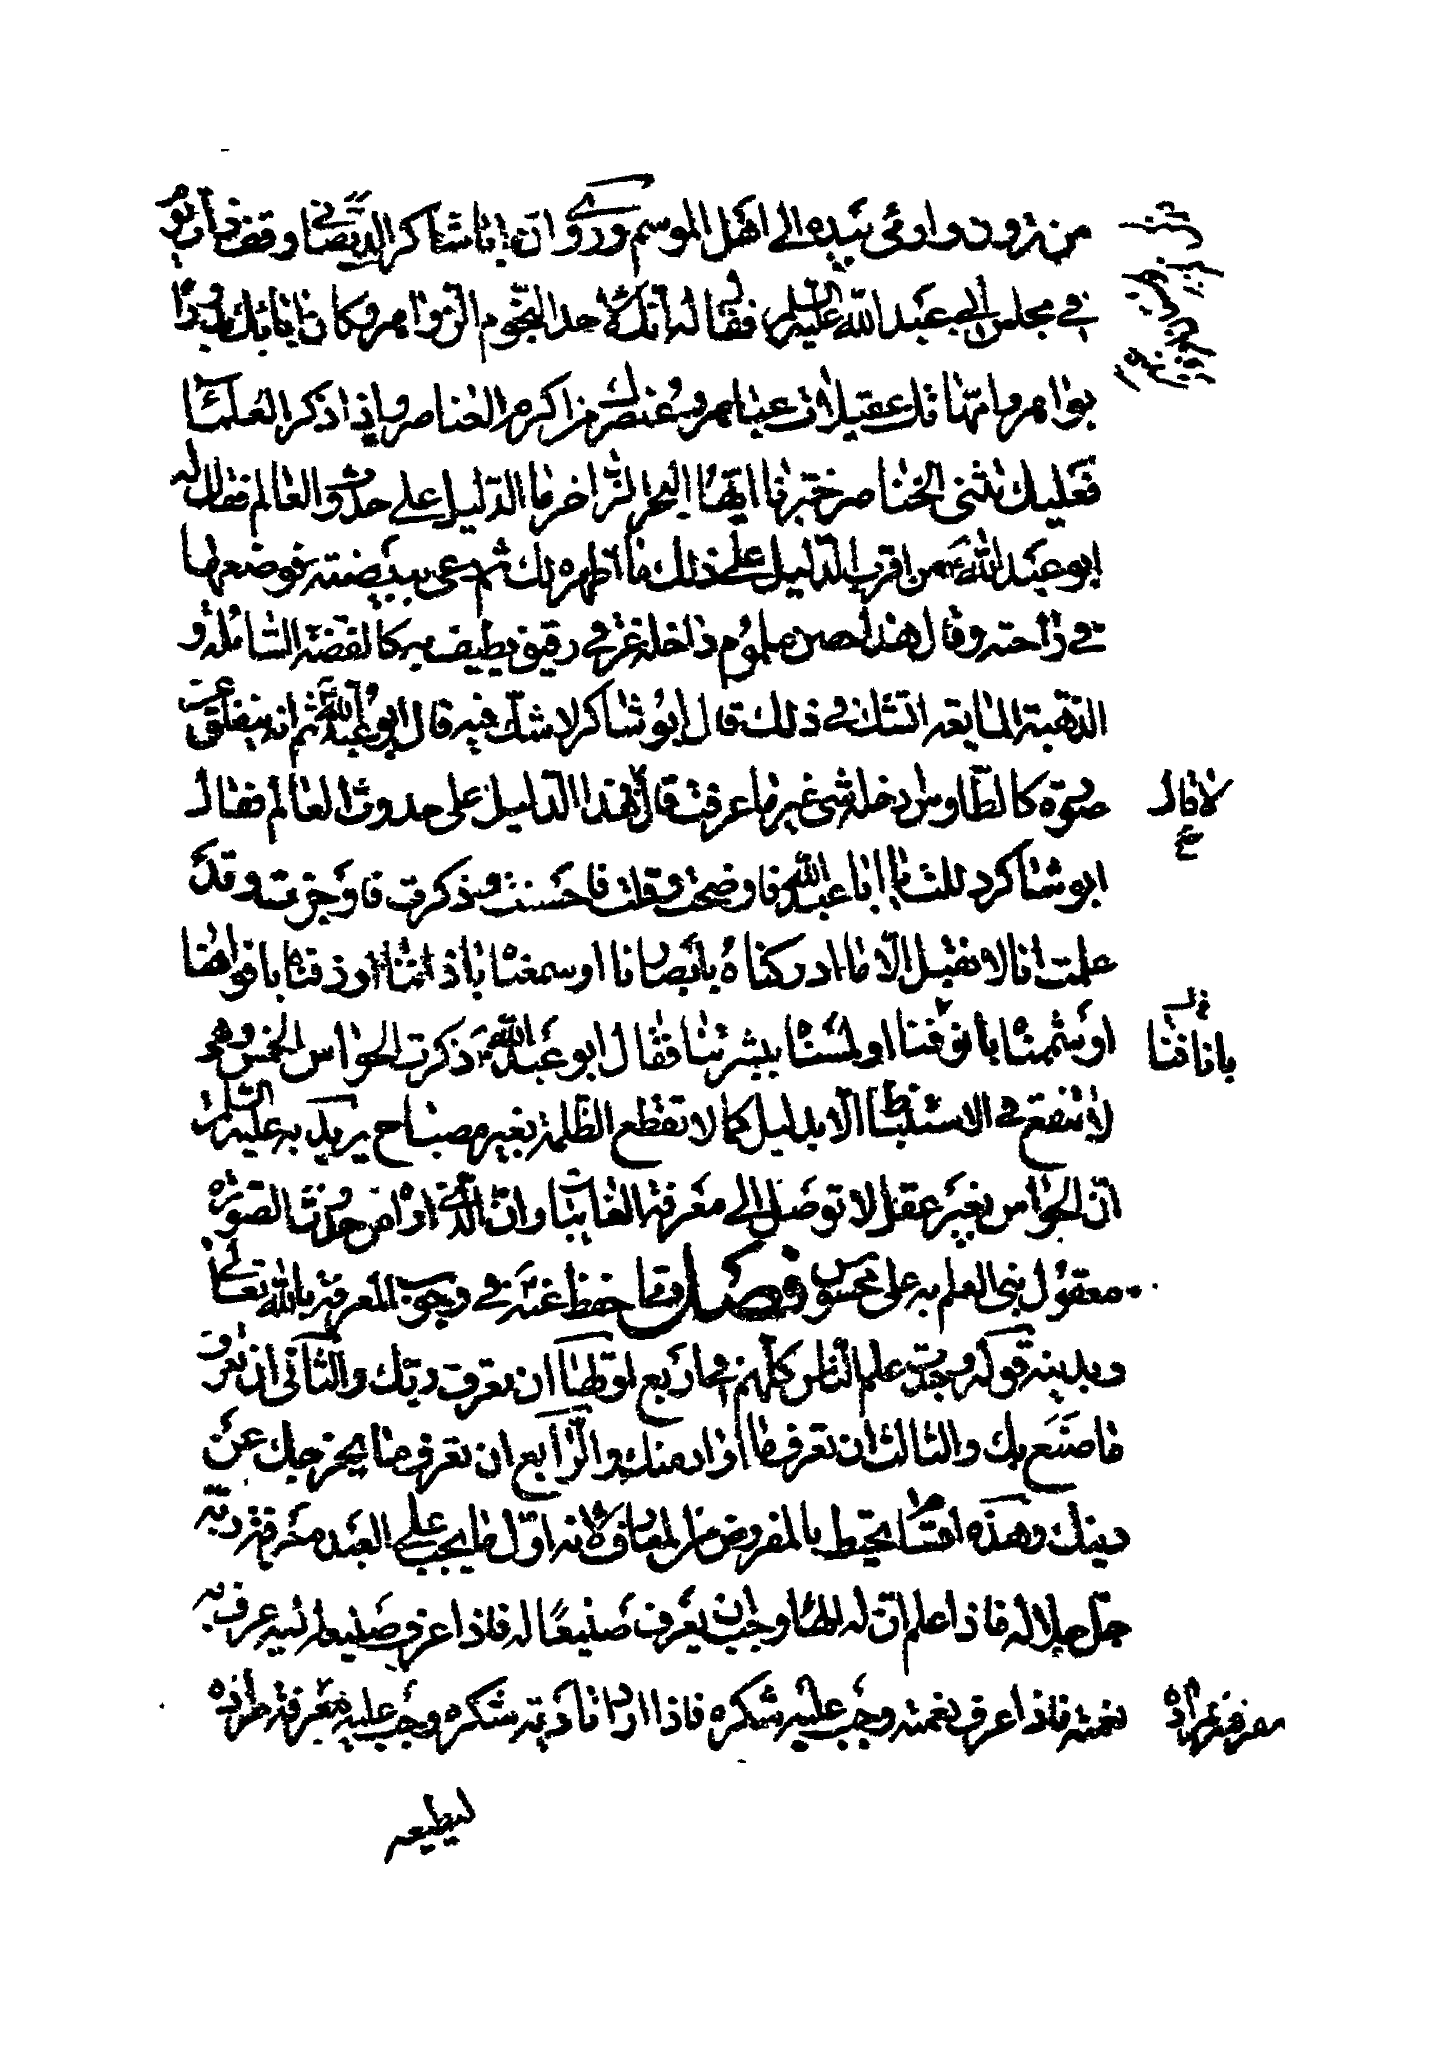 من ترون واومى بيده الى اهل الموسم وروى ان ابا شاكر الديصاني وقف ذات يوم
في مجلس ابي عبد الله عليه السلم فقال له انك لاحد النجوم الزواهر وكان اباؤك بدورا
بواهر وامهاتك عقيلات عباهر وعنصرك من اكرم العناصر واذا ذكر العلماء
فعليك تثنى الخناصر خبرنا ايها البحر الزاخر ما الدليل على حدوث العالم فقال له
ابو عبد الله من اقرب الدليل على ذلك ما اظهره لك ثم دعى ببيضة فوضعها
في راحته وقال هذا حصن ملموم داخله غرقئ رقيق يطيف به كالفضة السائلة و
الذهبة المايعة اتشك في ذلك قال ابو شاكر لا شك فيه قال ابو عبد الله ثم انه ينفلق عن
صورة كالطاوس ادخله شئ غير ما عرفت قال لا قال فهذا الدليل على حدوث العالم فقال
ابو شاكر دللت يا ابا عبد الله فاوضحت وقلت فاحسنت وذكرت فاوجزت وقد
علمت انا لا نقبل الا ما ادركناه بابصارنا او سمعناه باذاننا او ذقناه بافواهنا
او شممناه بانوفنا او لمسناه ببشرتنا فقال ابو عبد الله ذكرت الحواس الخمس وهى
لا تنفع في الاستنباط الا بدليل كما لا تقطع الظلمة بغير مصباح يريد به عليه السلام
ان الحواس بغير عقل لا توصل الى معرفة الغائبات وان الذي اراه من حدوث الصورة
معقول بنى العلم به على محسوس فصل ومما حفظ عنه في وجوب المعرفة بالله تعالى
وبدينه قوله وجدت علم الناس كلهم في اربع اولها ان تعرف ربك والثاني ان تعرف
ما صنع بك والثالث ان تعرف ما اراد منك والرابع ان تعرف ما يخرجك عن
دينك وهذه اقسام تحيط بالمفروض من المعارف لانه اول ما يجب على العبد معرفة ربه
جل جلاله فاذا علم ان له الها وجب ان يعرف صنيعا له فاذا عرف صنيعه اليه عرف به
نعمته فاذا عرف نعمته وجب عليه شكره فاذا اراد تادية شكره وجب عليه معرفة مراده
لا قال
صح
بانافنا
معرفة مراده
ليطيعه